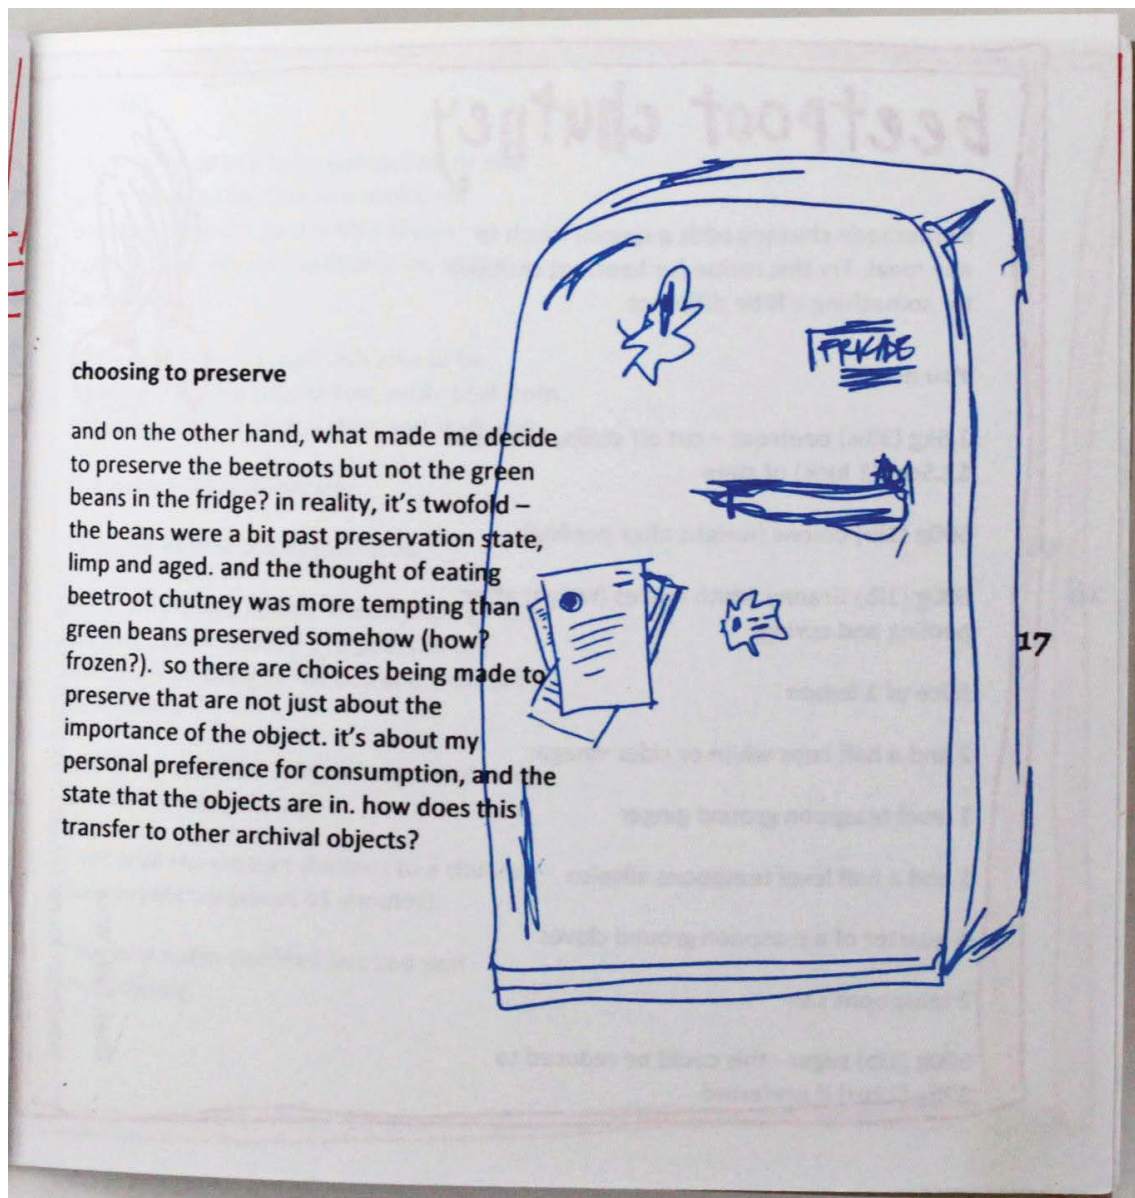 choosing to preserve
and on the other hand, what made me decide
to preserve the beetroots but not the green
beans in the fridge? in reality, it's twofold –
the beans were a bit past preservation state,
limp and aged. and the thought of eating
beetroot chutney was more tempting than
green beans preserved somehow (how?
frozen?).  so there are choices being made to
preserve that are not just about the
importance of the object. it's about my
personal preference for consumption, and the
state that the objects are in. how does this
transfer to other archival objects?
17